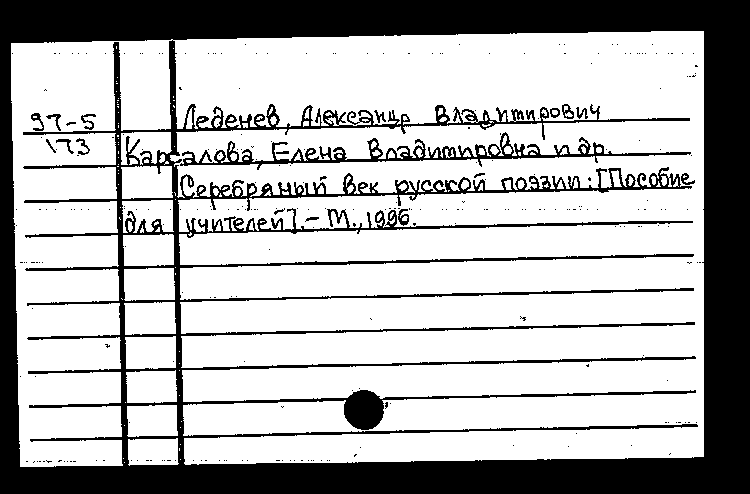 97-5 Леденев, Александр Владимирович
173 Карсалова, Елена Владимировна и др.
Серебряный век русской поэзии: [Пособие
для учителей]. – М., 1996.